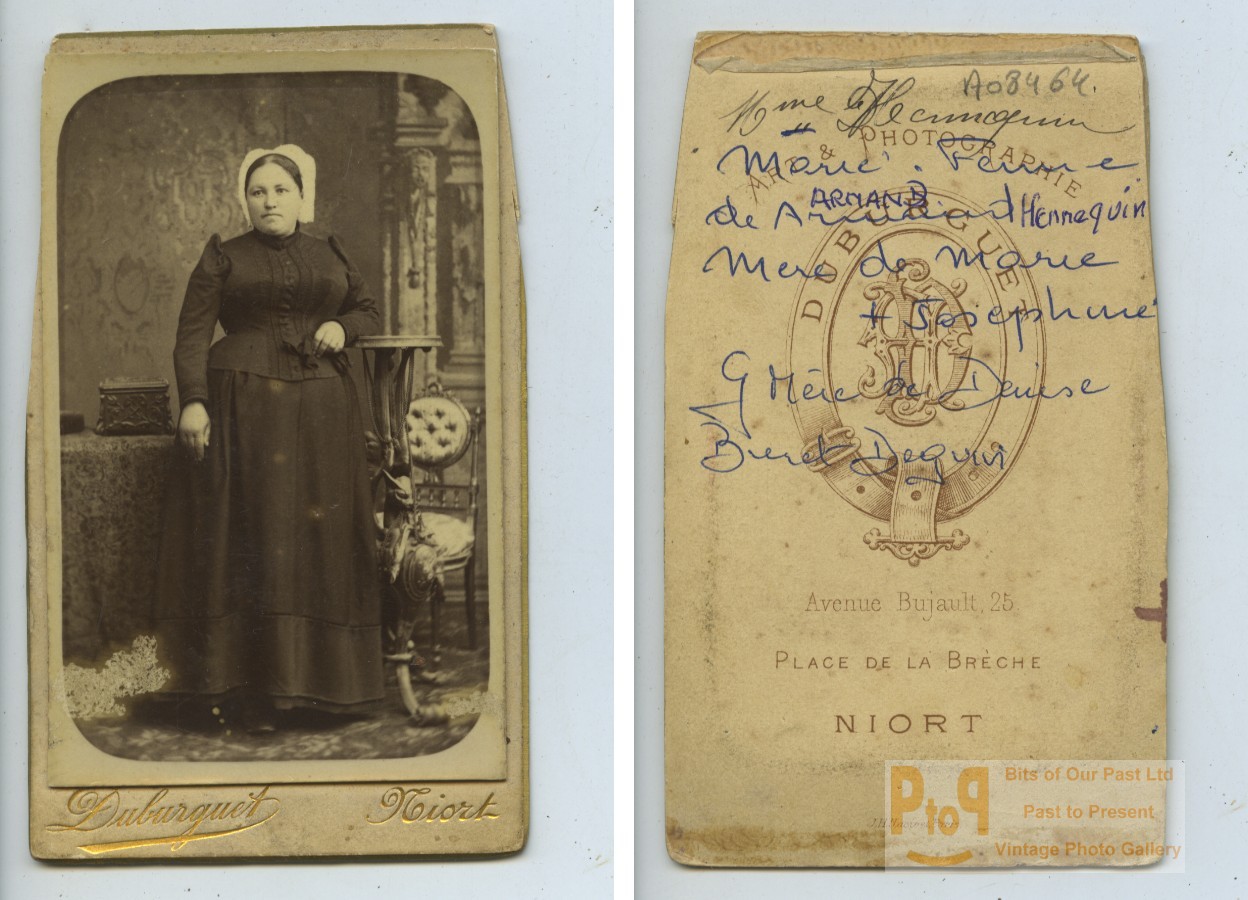 Duburguet Niort
A08464.
Mme Hennequin
"
ART & PHOTOGRAPHIE
Marie. Femme
ARMAND
de Armand Hennequin
DUBURGUET
Mere de Marie
+ Josephine
G Mère de Denise
Beret Dequin
Avenue Bujault, 25.
PLACE DE LA BRÈCHE
NIORT
Bits of Our Past Ltd
PtoP Past to Present
Vintage Photo Gallery